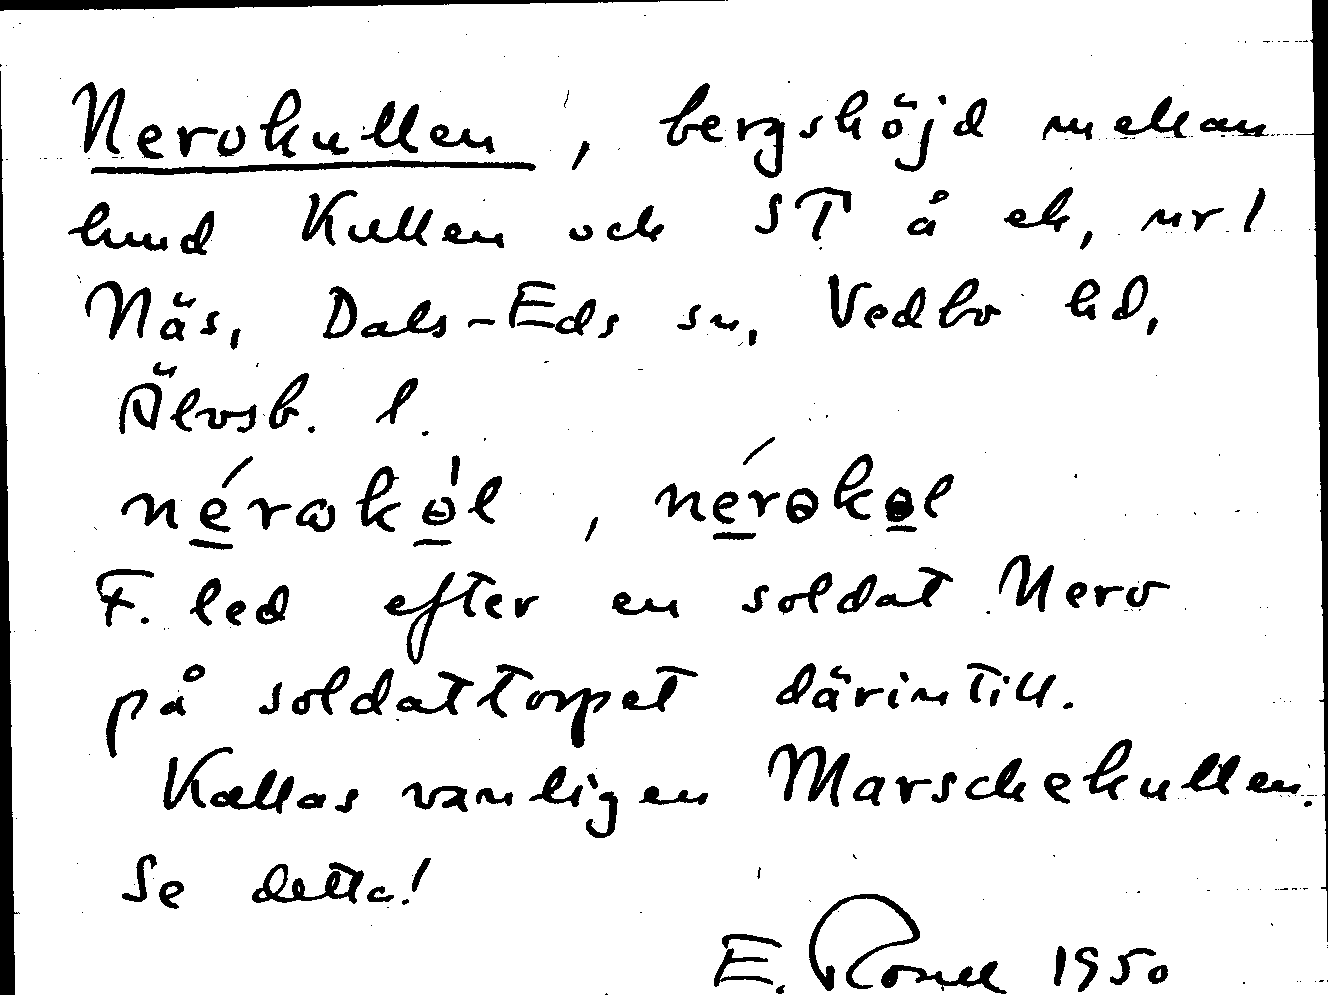 Nerokullen, bergshöjd mellan
lund Kullen och ST å ek, nr 1
Näs, Dals-Eds sn, Vedbo hd,
Älvsb. l.
F. led efter en soldat Nero
på soldattorpet därintill.
Kallas vanligen Marschekullen.
Se detta!
E. 1950